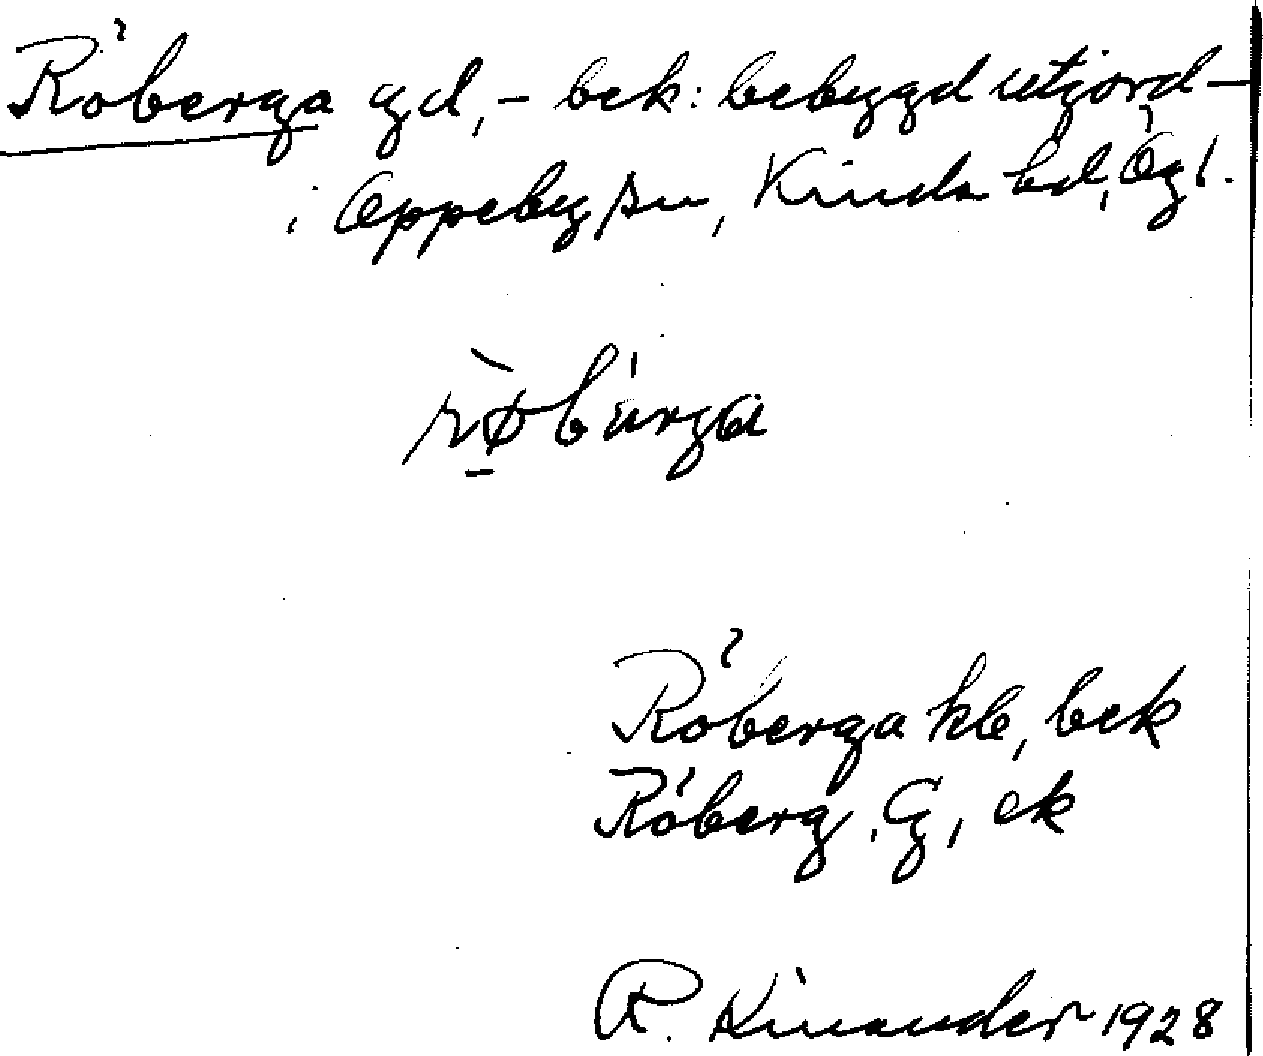 Röberga gd, - bek: bebygd utjord -
i Oppeby sn, Kinda hd, Ögl.
Röberga kb, bek
Röberg, G, ek
R. Kinander 1928